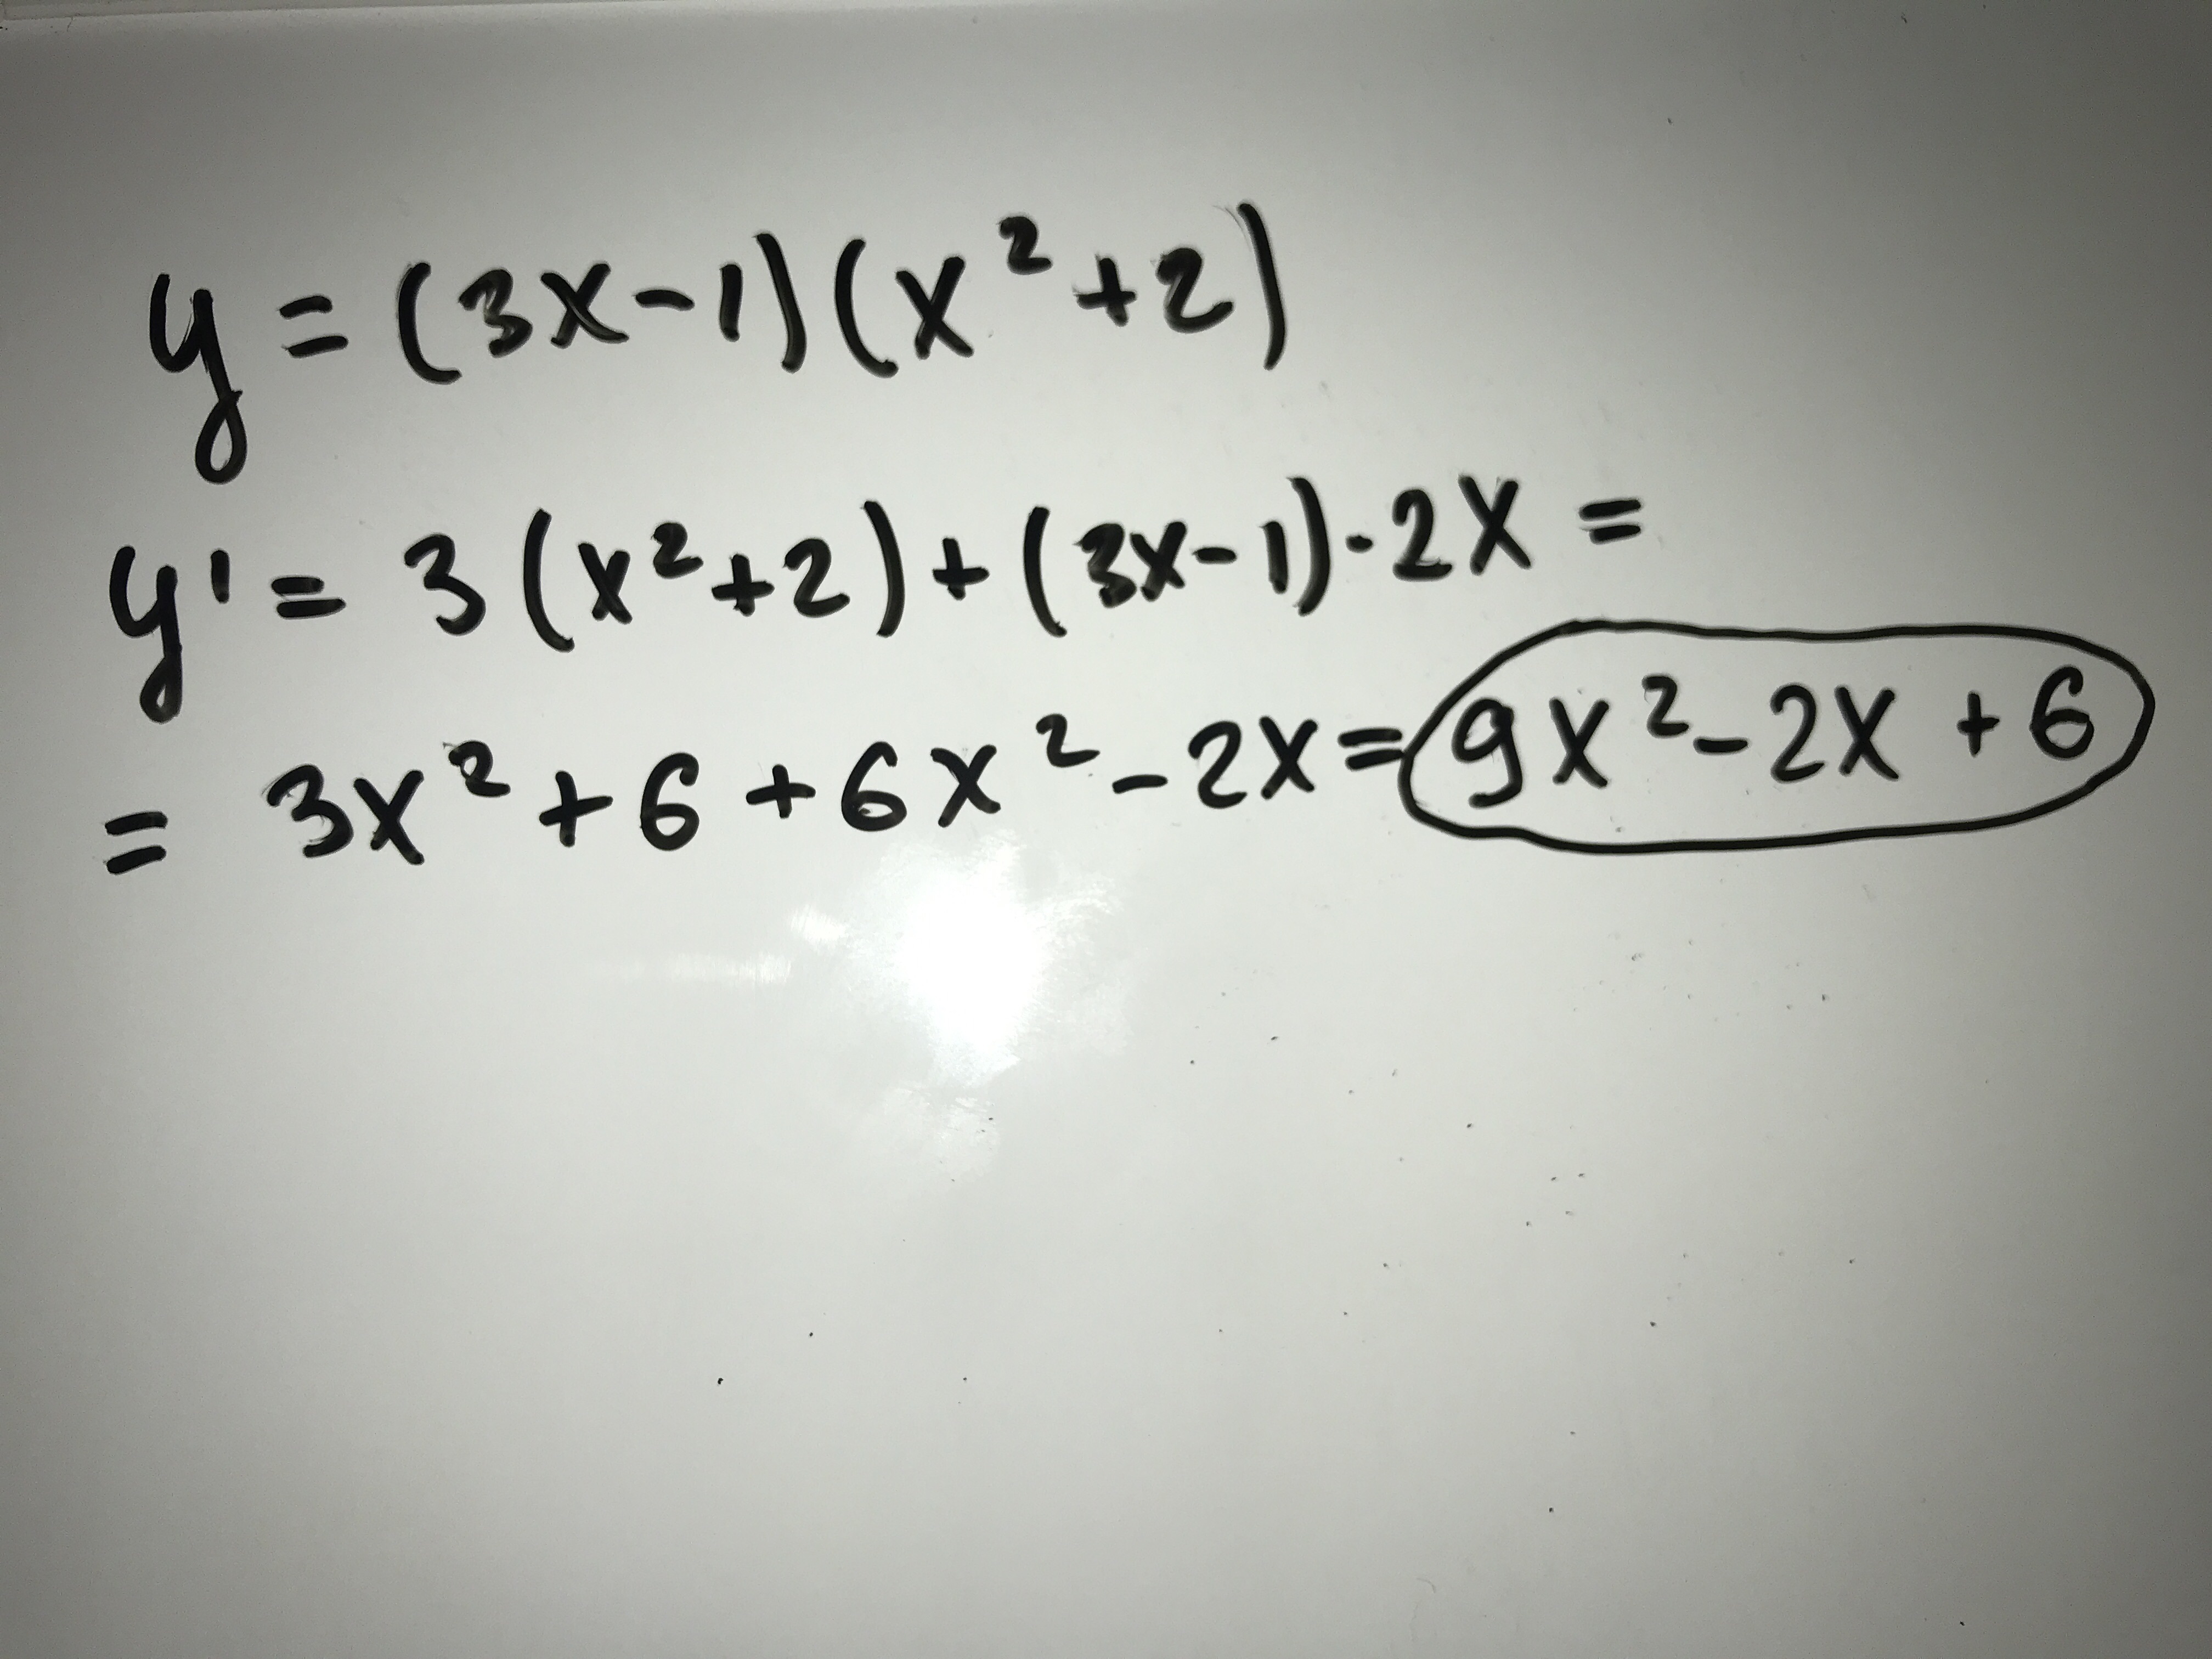 y = (3x-1)(x²+2)
y' = 3(x²+2)+(3x-1)·2x =
= 3x²+6+6x²-2x= 9x²-2x+6